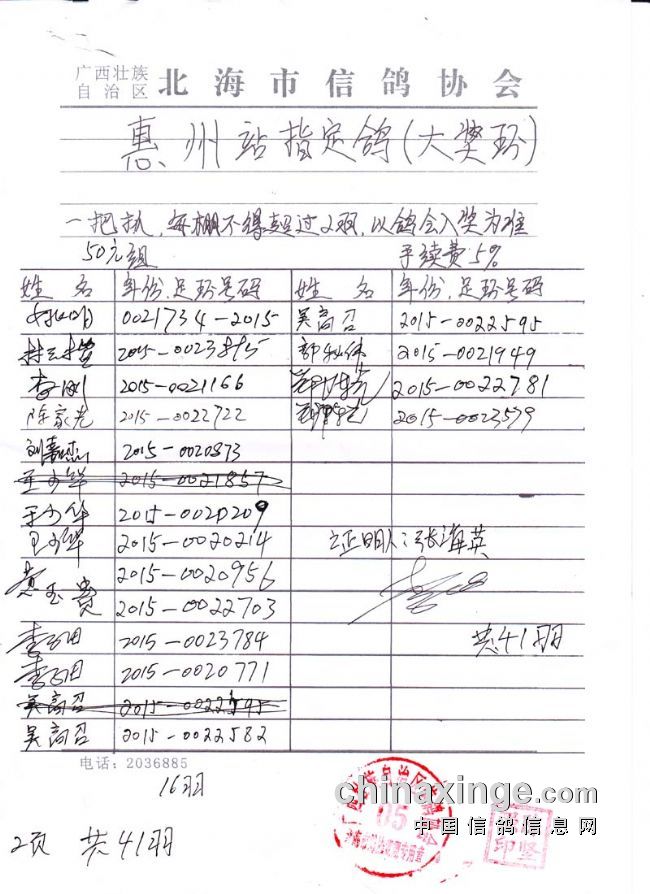 广西壮族
自治区 北海市信鸽协会
惠州站指定鸽(大奖环)
一把抓,每棚不得超过2羽,以鸽会入奖为准
50元组 手续费:5%
姓名 年份,足环号码 姓名 年份,足环号码
0021734-2015 吴高召 2015-0022595
2015-0023895 2015-0021949
李刚 2015-0021166 2015-0022781
陈家光 2015-0022722 2015-0023579
2015-0020873
2015-0021857
2015-0020209
王少华 2015-0020214 证明人:张海英
2015-0020956
2015-0022703
2015-0023784 共41羽
2015-0020771
吴高召 2015-0022595
吴高召 2015-0022582
电话:2036885
16羽
chinaxinge.com
05
中国信鸽信息网
2页 共41羽